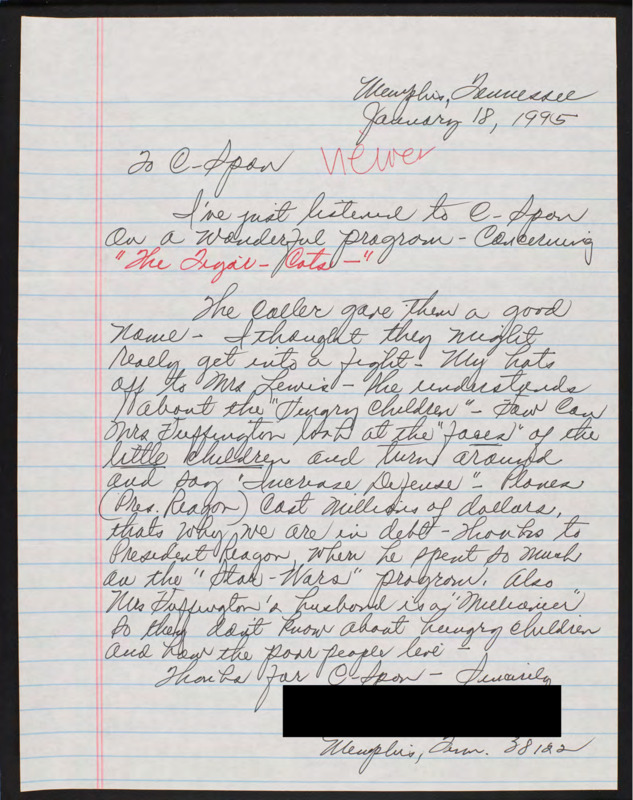 Memphis, Tennessee
January 18, 1995
To C-Span newer
I've just listened to C-Span
On a wonderful program - Concerning
"The Tigar - Cats -"
The caller gave them a good
name - I thought they might
really get into a fight - My hats
off to Mrs Lewis - He understands
about the "Hungry Children" - How Can
Mrs Huffington look at the "faces" of the
little children and turn around
and say "Increase Defense" - Planes
(Pres. Reagon) Cost Millions of dollars,
thats why we are in debt - Thanks to
President Reagon, when he spent so much
on the "Star-Wars" program. Also
Mrs Huffington's husband is a "Millioner"
So they don't know about hungry children
and how the poor people live -
Thanks for C-Span - Sincerily
Memphis, Tenn. 38122